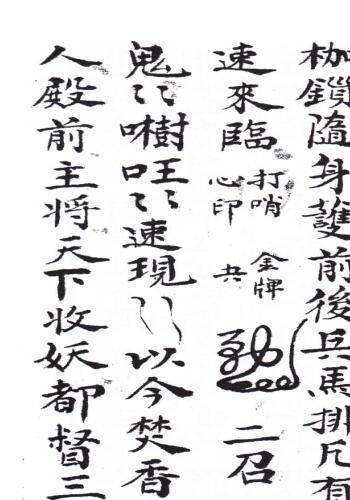 枷鎖隨身護前後兵馬排凡有
速來臨 打哨 心印 金牌 二召
鬼〻啣樹旺〻速現〻以今焚香
人殿前主将天下收妖都督三